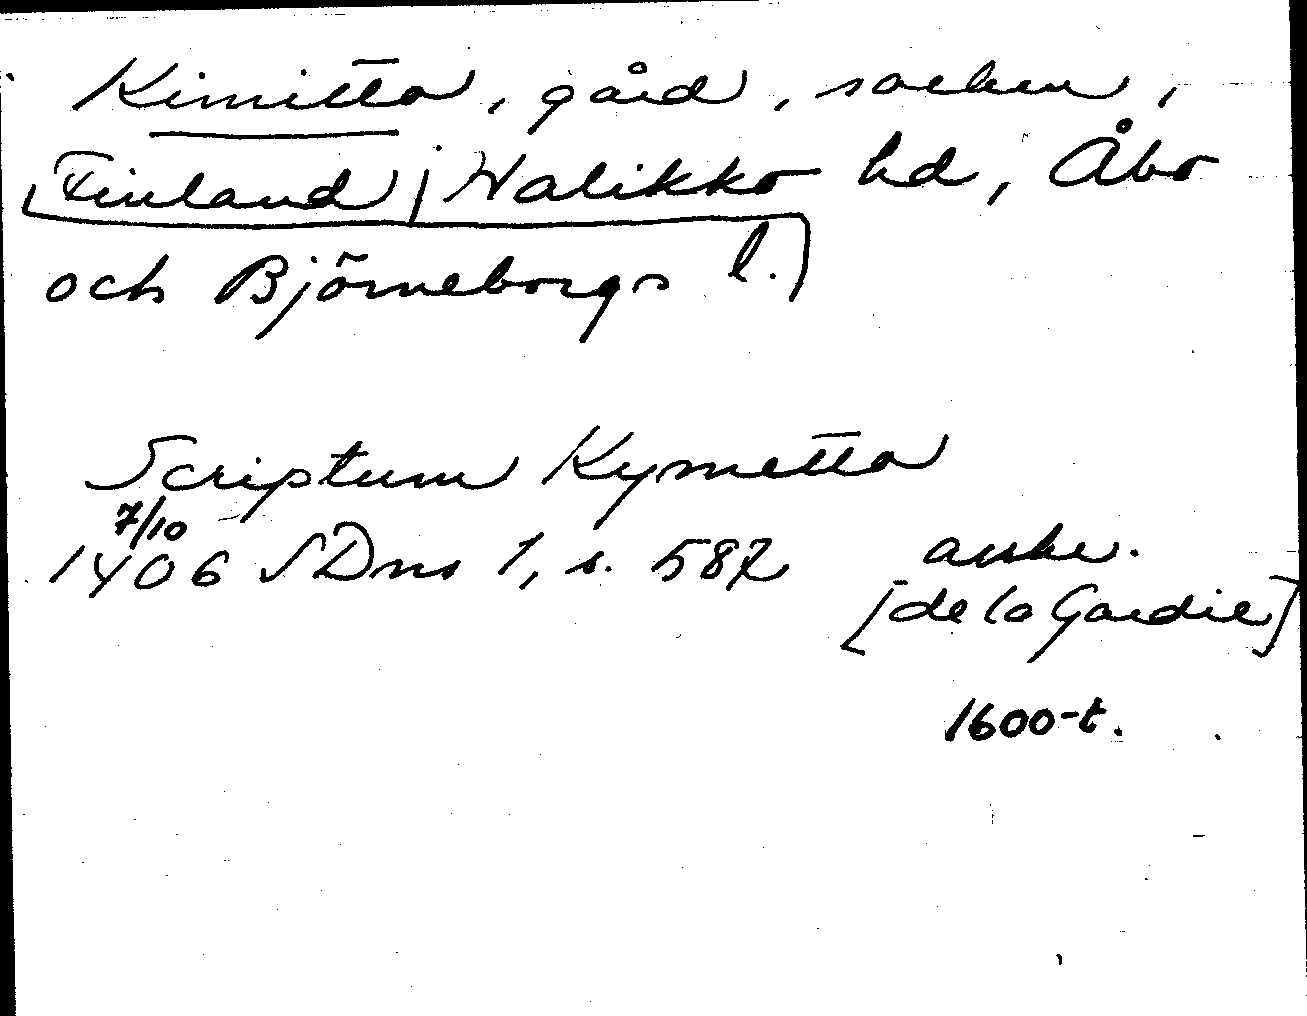 Kimitto, gård, socken,
Finland, Halikko hd, Åbo
och Björneborgs l.
Scriptum Kymetto
7/10
1406 SDns 1, s. 587 avskr.
[de la Gardie]
1600-t.